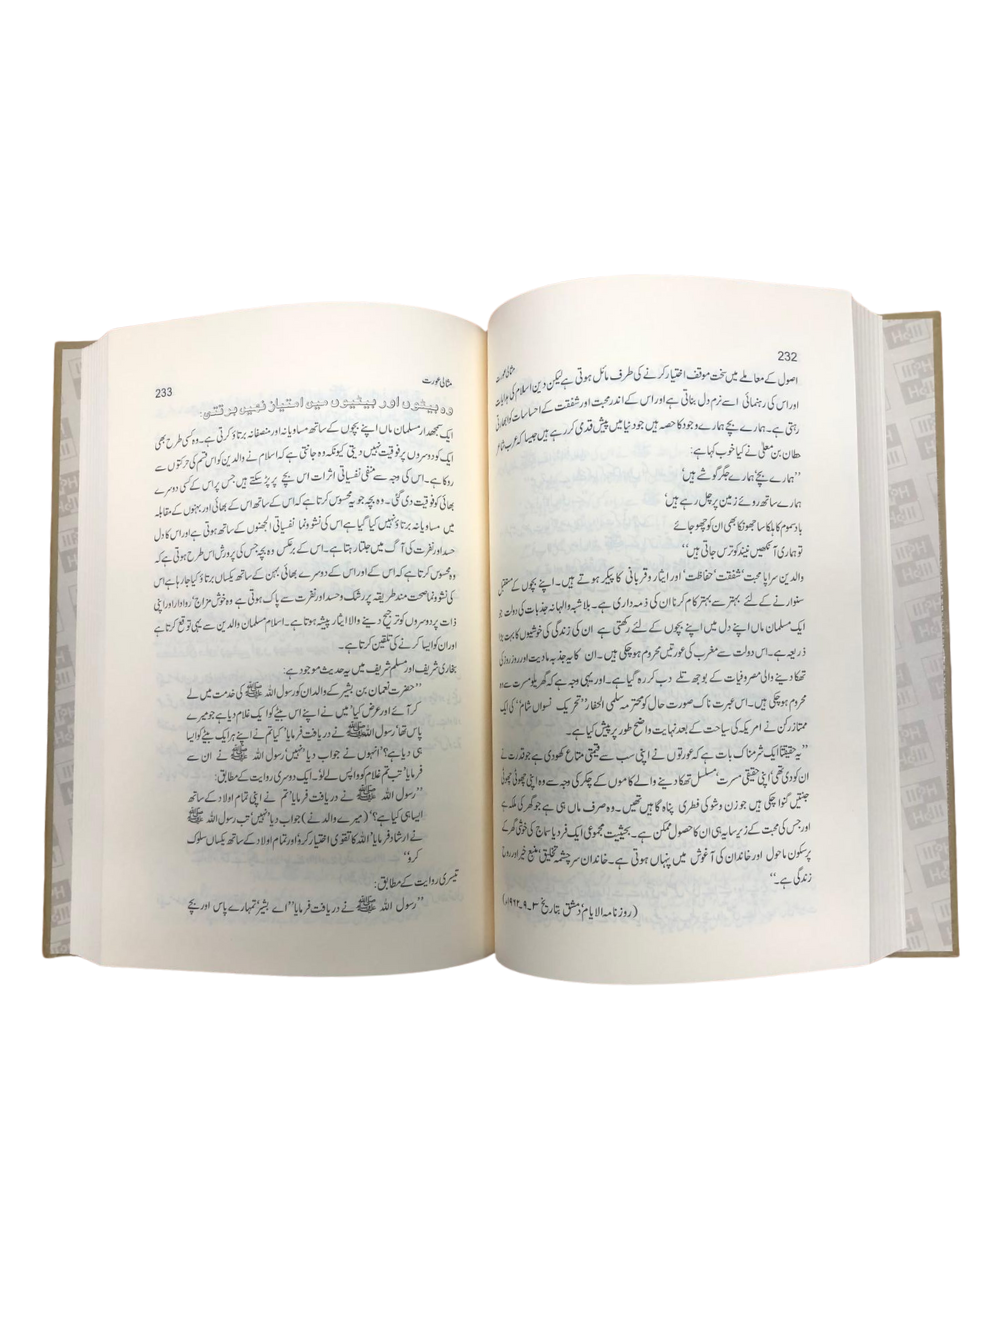 232
مثالی عورت
اصول کے معاملے میں سخت موقف اختیار کرنے کی طرف مائل ہوتی ہے لیکن دین اسلام کی ہدایات
اور اس کی رہنمائی اسے نرم دل بناتی ہے اور اس کے اندر محبت اور شفقت کے احساسات کو ابھارتی
رہتی ہے۔ ہمارے بچے ہمارے وجود کا حصہ ہیں جو دنیا میں پیش قدمی کر رہے ہیں جیسا کہ عرب شاعر
حطان بن معلی نے کیا خوب کہا ہے:
’’ہمارے بچے‘ ہمارے جگر گوشے ہیں‘
ہمارے ساتھ روئے زمین پر چل رہے ہیں‘
باد سموم کا ہلکا سا جھونکا بھی ان کو چھو جائے
تو ہماری آنکھیں نیند کو ترس جاتی ہیں‘‘
والدین سراپا محبت‘ شفقت‘ حفاظت‘ اور ایثار و قربانی کا پیکر ہوتے ہیں۔ اپنے بچوں کے مستقبل
سنوارنے کے لئے بہتر سے بہتر کام کرنا ان کی ذمہ داری ہے۔ بلاشبہ والہانہ جذبات کی دولت جو
ایک مسلمان ماں اپنے دل میں اپنے بچوں کے لئے رکھتی ہے ان کی زندگی کی خوشیوں کا بہت بڑا
ذریعہ ہے۔ اس دولت سے مغرب کی عورتیں محروم ہو چکی ہیں۔ ان کا یہ جذبہ مادیت اور روز روز کی
تھکا دینے والی مصروفیات کے بوجھ تلے دب کر رہ گیا ہے۔ اور یہی وجہ ہے کہ گھریلو مسرت سے وہ
محروم ہو چکی ہیں۔ اس عبرت ناک صورت حال کو محترمہ سلمی الحفار‘ ’’تحریک نسواں شام‘‘ کی ایک
ممتاز رکن نے امریکہ کی سیاحت کے بعد نہایت واضح طور پر پیش کیا ہے۔
’’یہ حقیقتاً ایک شرمناک بات ہے کہ عورتوں نے اپنی سب سے قیمتی متاع کھو دی ہے جو قدرت نے
ان کو دی تھی‘ اپنی حقیقی مسرت‘ مسلسل تھکا دینے والے کاموں کے چکر کی وجہ سے وہ اپنی چھوٹی چھوٹی
جنتیں گنوا چکی ہیں جو زن و شو کی فطری پناہ گاہیں تھیں۔ وہ صرف ماں ہی ہے جو گھر کی ملکہ ہے
اور جس کی محبت کے زیر سایہ ہی ان کا حصول ممکن ہے۔ بحیثیت مجموعی ایک فرد یا سماج کی خوشی گھر کے
پرسکون ماحول اور خاندان کی آغوش میں پنہاں ہوتی ہے۔ خاندان سرچشمہ تخلیق‘ منبع خیر اور روحانی
زندگی ہے۔‘‘
(روزنامہ الایام‘ دمشق بتاریخ ۳۔۹۔۱۹۶۲ء)
233
مثالی عورت
وہ بیٹوں اور بیٹیوں میں امتیاز نہیں برتتی:
ایک سمجھدار مسلمان ماں اپنے بچوں کے ساتھ مساویانہ اور منصفانہ برتاؤ کرتی ہے۔ وہ کسی طرح بھی
ایک کو دوسروں پر فوقیت نہیں دیتی کیونکہ وہ جانتی ہے کہ اسلام نے والدین کو اس قسم کی حرکتوں سے
روکا ہے۔ اس کی وجہ سے منفی نفسیاتی اثرات اس بچے پر پڑ سکتے ہیں جس پر اس کے کسی دوسرے
بھائی کو فوقیت دی گئی۔ وہ بچہ جو یہ محسوس کرتا ہے کہ اس کے ساتھ اس کے بھائی اور بہنوں کے مقابلہ
میں مساویانہ برتاؤ نہیں کیا گیا ہے اس کی نشو و نما نفسیاتی الجھنوں کے ساتھ ہوتی ہے اور اس کا دل
حسد اور نفرت کی آگ میں جلتا رہتا ہے۔ اس کے برعکس وہ بچہ جس کی پرورش اس طرح ہوتی ہے کہ
وہ محسوس کرتا ہے کہ اس کے اور اس کے دوسرے بھائی بہن کے ساتھ یکساں برتاؤ کیا جا رہا ہے اس
کی نشو و نما صحت مند طریقہ پر رشک و حسد اور نفرت سے پاک ہوتی ہے وہ خوش مزاج‘ روادار اور اپنی
ذات پر دوسروں کو ترجیح دینے والا ایثار پیشہ ہوتا ہے۔ اسلام مسلمان والدین سے یہی توقع کرتا ہے
اور ان کو ایسا کرنے کی تلقین کرتا ہے۔
بخاری شریف اور مسلم شریف میں یہ حدیث موجود ہے:
’’حضرت نعمان بن بشیر کے والد ان کو رسول اللہ ﷺ کی خدمت میں لے
کر آئے اور عرض کیا‘ میں نے اپنے اس بیٹے کو ایک غلام دیا ہے جو میرے
پاس تھا‘ رسول اللہ ﷺ نے دریافت فرمایا‘ کیا تم نے اپنے ہر ایک بیٹے کو ایسا
ہی دیا ہے؟‘ انہوں نے جواب دیا‘ نہیں‘ رسول اللہ ﷺ نے ان سے
فرمایا‘ تب تم غلام کو واپس لے لو۔ ایک دوسری روایت کے مطابق:
’’رسول اللہ ﷺ نے دریافت فرمایا‘ تم نے اپنی تمام اولاد کے ساتھ
ایسا ہی کیا ہے؟‘ (میرے والد نے) جواب دیا‘ نہیں‘ تب رسول اللہ ﷺ
نے ارشاد فرمایا‘ اللہ کا تقوی اختیار کرو‘ اور تمام اولاد کے ساتھ یکساں سلوک
کرو‘‘
تیسری روایت کے مطابق:
’’رسول اللہ ﷺ نے دریافت فرمایا ’’اے بشیر‘ تمہارے پاس اور بچے